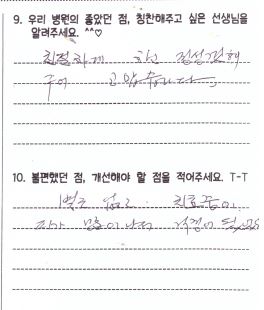 9. 우리 병원의 좋았던 점, 칭찬해주고 싶은 선생님을
알려주세요. ^^♡
친절하게 하고 정성껏해
주어 고맙습니다.
10. 불편했던 점, 개선해야 할 점을 적어주세요. T-T
별로 없고 치료중이
피가 많이 나서 걱정이